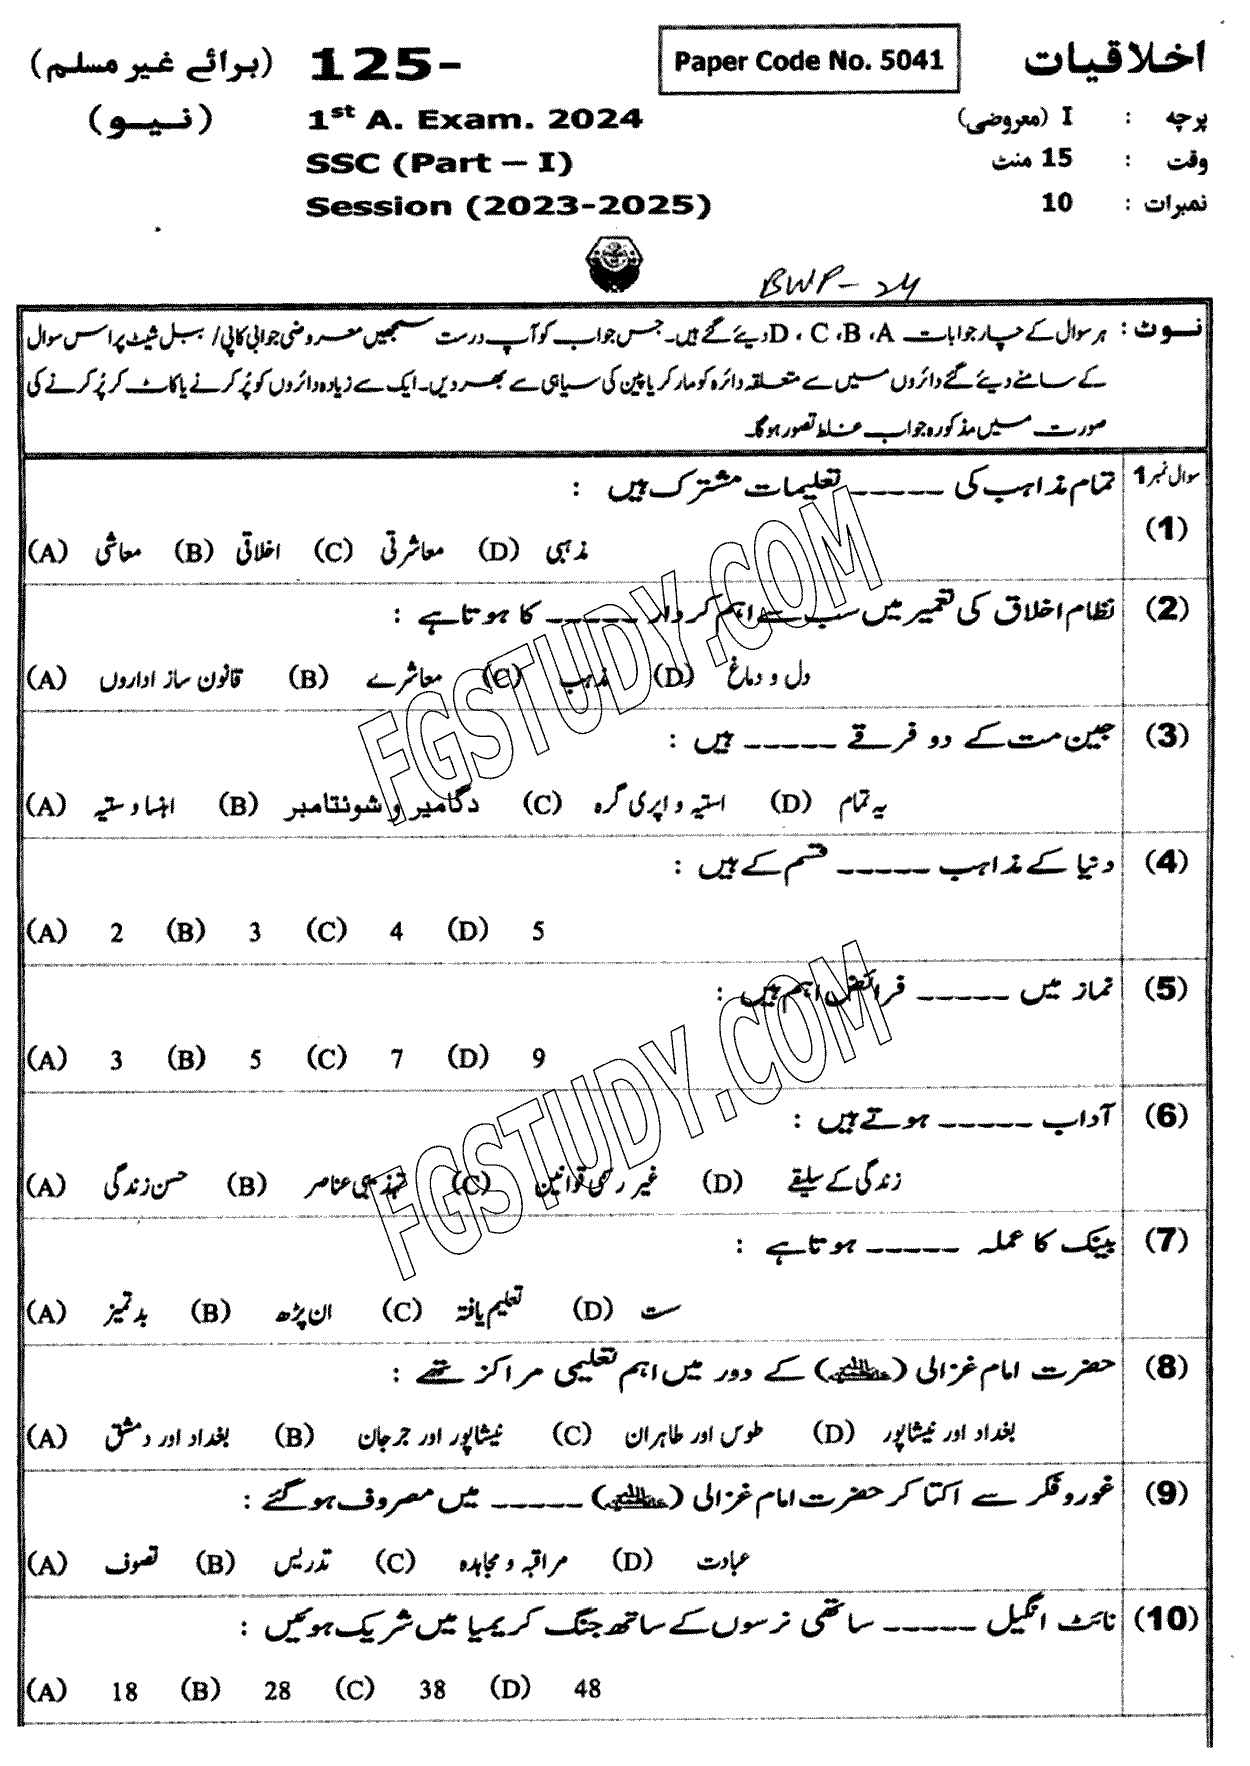 اخلاقیات
Paper Code No. 5041
125-
(برائے غیر مسلم)
پرچہ : I (معروضی)
1st A. Exam. 2024
(نیو)
وقت : 15 منٹ
SSC (Part – I)
نمبرات : 10
Session (2023-2025)
BWP-24
نوٹ : ہر سوال کے چار جوابات A، B، C، D دیئے گئے ہیں۔ جس جواب کو آپ درست سمجھیں معروضی جوابی کاپی / ببل شیٹ پر اس سوال
کے سامنے دیئے گئے دائروں میں سے متعلقہ دائرہ کو مارکر یا پین کی سیاہی سے بھر دیں۔ ایک سے زیادہ دائروں کو پُر کرنے یا کاٹ کر پُر کرنے کی
صورت میں مذکورہ جواب غلط تصور ہوگا۔
سوال نمبر 1
(1) تمام مذاہب کی ----- تعلیمات مشترک ہیں :
(A) معاشی (B) اخلاقی (C) معاشرتی (D) مذہبی
(2) نظام اخلاق کی تعمیر میں سب سے اہم کردار ----- کا ہوتا ہے :
(A) قانون ساز اداروں (B) معاشرے (C) مذہب (D) دل و دماغ
(3) جین مت کے دو فرقے ----- ہیں :
(A) اہنسا و ستیہ (B) دگامبر و شوئتامبر (C) استیہ و اپری گرہ (D) یہ تمام
(4) دنیا کے مذاہب ----- قسم کے ہیں :
(A) 2 (B) 3 (C) 4 (D) 5
(5) نماز میں ----- فرائض اہم ہیں :
(A) 3 (B) 5 (C) 7 (D) 9
(6) آداب ----- ہوتے ہیں :
(A) حسن زندگی (B) تہذیبی عناصر (C) غیر رسمی قوانین (D) زندگی کے سلیقے
(7) بینک کا عملہ ----- ہوتا ہے :
(A) بدتمیز (B) ان پڑھ (C) تعلیم یافتہ (D) ست
(8) حضرت امام غزالی (رحمۃ اللہ علیہ) کے دور میں اہم تعلیمی مراکز تھے :
(A) بغداد اور دمشق (B) نیشاپور اور جرجان (C) طوس اور طاہران (D) بغداد اور نیشاپور
(9) غور و فکر سے اکتا کر حضرت امام غزالی (رحمۃ اللہ علیہ) ----- میں مصروف ہو گئے :
(A) تصوف (B) تدریس (C) مراقبہ و مجاہدہ (D) عبادت
(10) نائٹ انگیل ----- ساتھی نرسوں کے ساتھ جنگ کریمیا میں شریک ہوئیں :
(A) 18 (B) 28 (C) 38 (D) 48
FGSTUDY.COM
FGSTUDY.COM